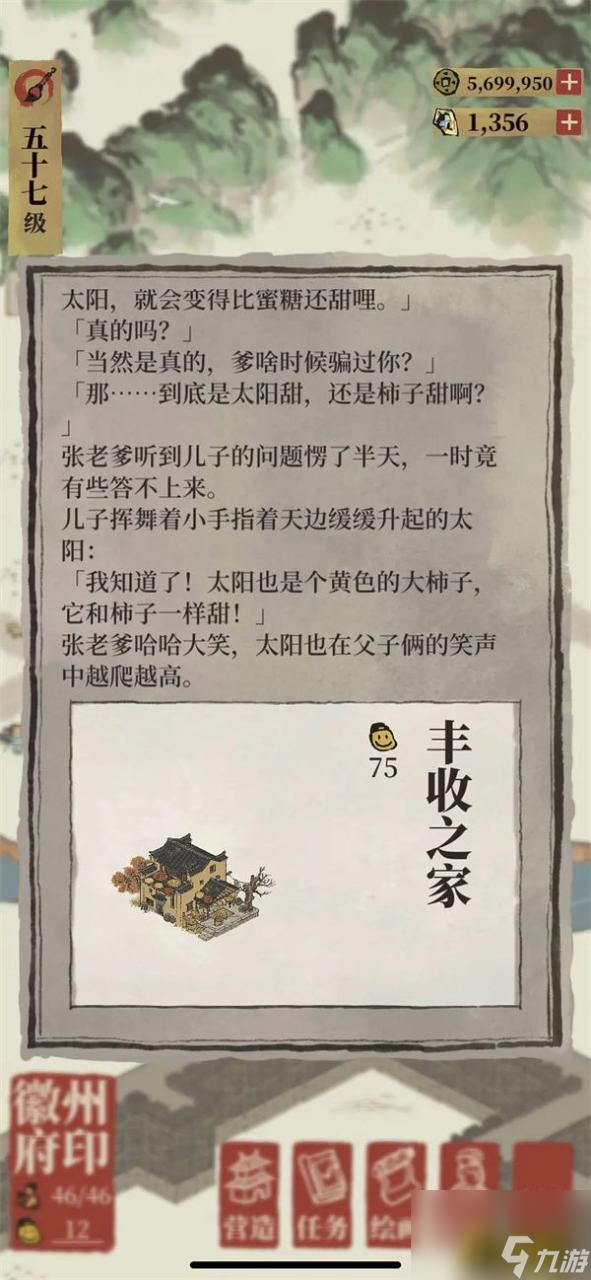 五十七级
5,699,950
1,356
太阳，就会变得比蜜糖还甜哩。」
「真的吗？」
「当然是真的，爹啥时候骗过你？」
「那……到底是太阳甜，还是柿子甜啊？
」
张老爹听到儿子的问题愣了半天，一时竟
有些答不上来。
儿子挥舞着小手指着天边缓缓升起的太
阳：
「我知道了！太阳也是个黄色的大柿子，
它和柿子一样甜！」
张老爹哈哈大笑，太阳也在父子俩的笑声
中越爬越高。
75
丰收之家
徽州
府印
46/46
12
营造
任务
绘
九游